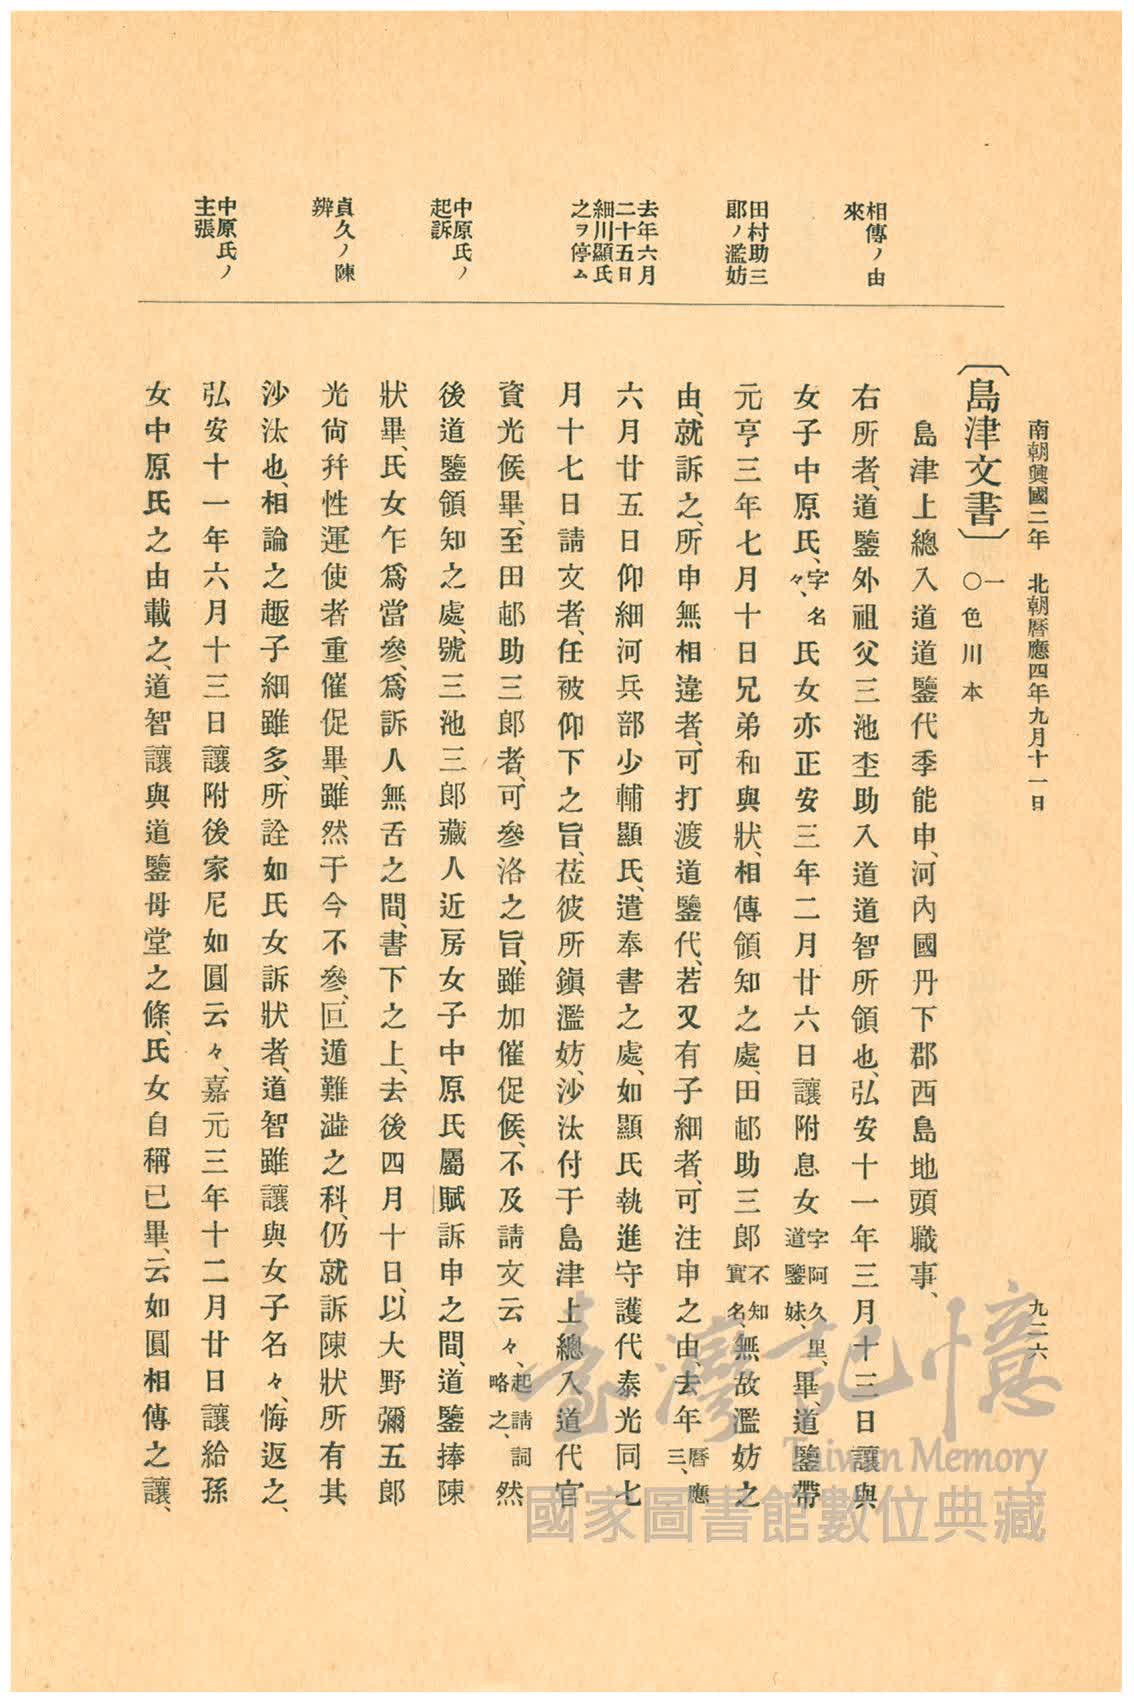 南朝興國二年　北朝曆應四年九月十一日
九二六
相傳ノ由
來
田村助三
郎ノ濫妨
去年六月
二十五日
細川顯氏
之ヲ停ム
中原氏ノ
起訴
貞久ノ陳
辨
中原氏ノ
主張
〔島津文書〕〇一
色川本
島津上總入道道鑒代季能申、河內國丹下郡西島地頭職事、
右所者、道鑒外祖父三池木工助入道道智所領也、弘安十一年三月十三日讓與
女子中原氏、字名々、氏女亦正安三年二月廿六日讓附息女字阿久里、道鑒妹、畢、道鑒帶
元亨三年七月十日兄弟和與狀、相傳領知之處、田邨助三郎不知實名、無故濫妨之
由、就訴之、所申無相違者、可打渡道鑒代、若又有子細者、可注申之由、去年曆應三、
六月廿五日仰細河兵部少輔顯氏、遣奉書之處、如顯氏執進守護代泰光同七
月十七日請文者、任被仰下之旨、莅彼所、鎭濫妨、沙汰付于島津上總入道代官
資光候畢、至田邨助三郎者、可參洛之旨、雖加催促候、不及請文云々、起請詞略之、然
後道鑒領知之處、號三池三郎藏人近房女子中原氏屬賦訴申之間、道鑒捧陳
狀畢、氏女乍爲當參、爲訴人無舌之間、書下之上、去後四月十日、以大野彌五郎
光尙幷性運使者重催促畢、雖然于今不參、叵遁難澁之科、仍就訴陳狀所有其
沙汰也、相論之趣子細雖多、所詮如氏女訴狀者、道智雖讓與女子名々、悔返之、
弘安十一年六月十三日讓附後家尼如圓云々、嘉元三年十二月廿日讓給孫
女中原氏之由載之、道智讓與道鑒母堂之條、氏女自稱已畢、云如圓相傳之讓、
臺灣記憶
Taiwan Memory
國家圖書館數位典藏